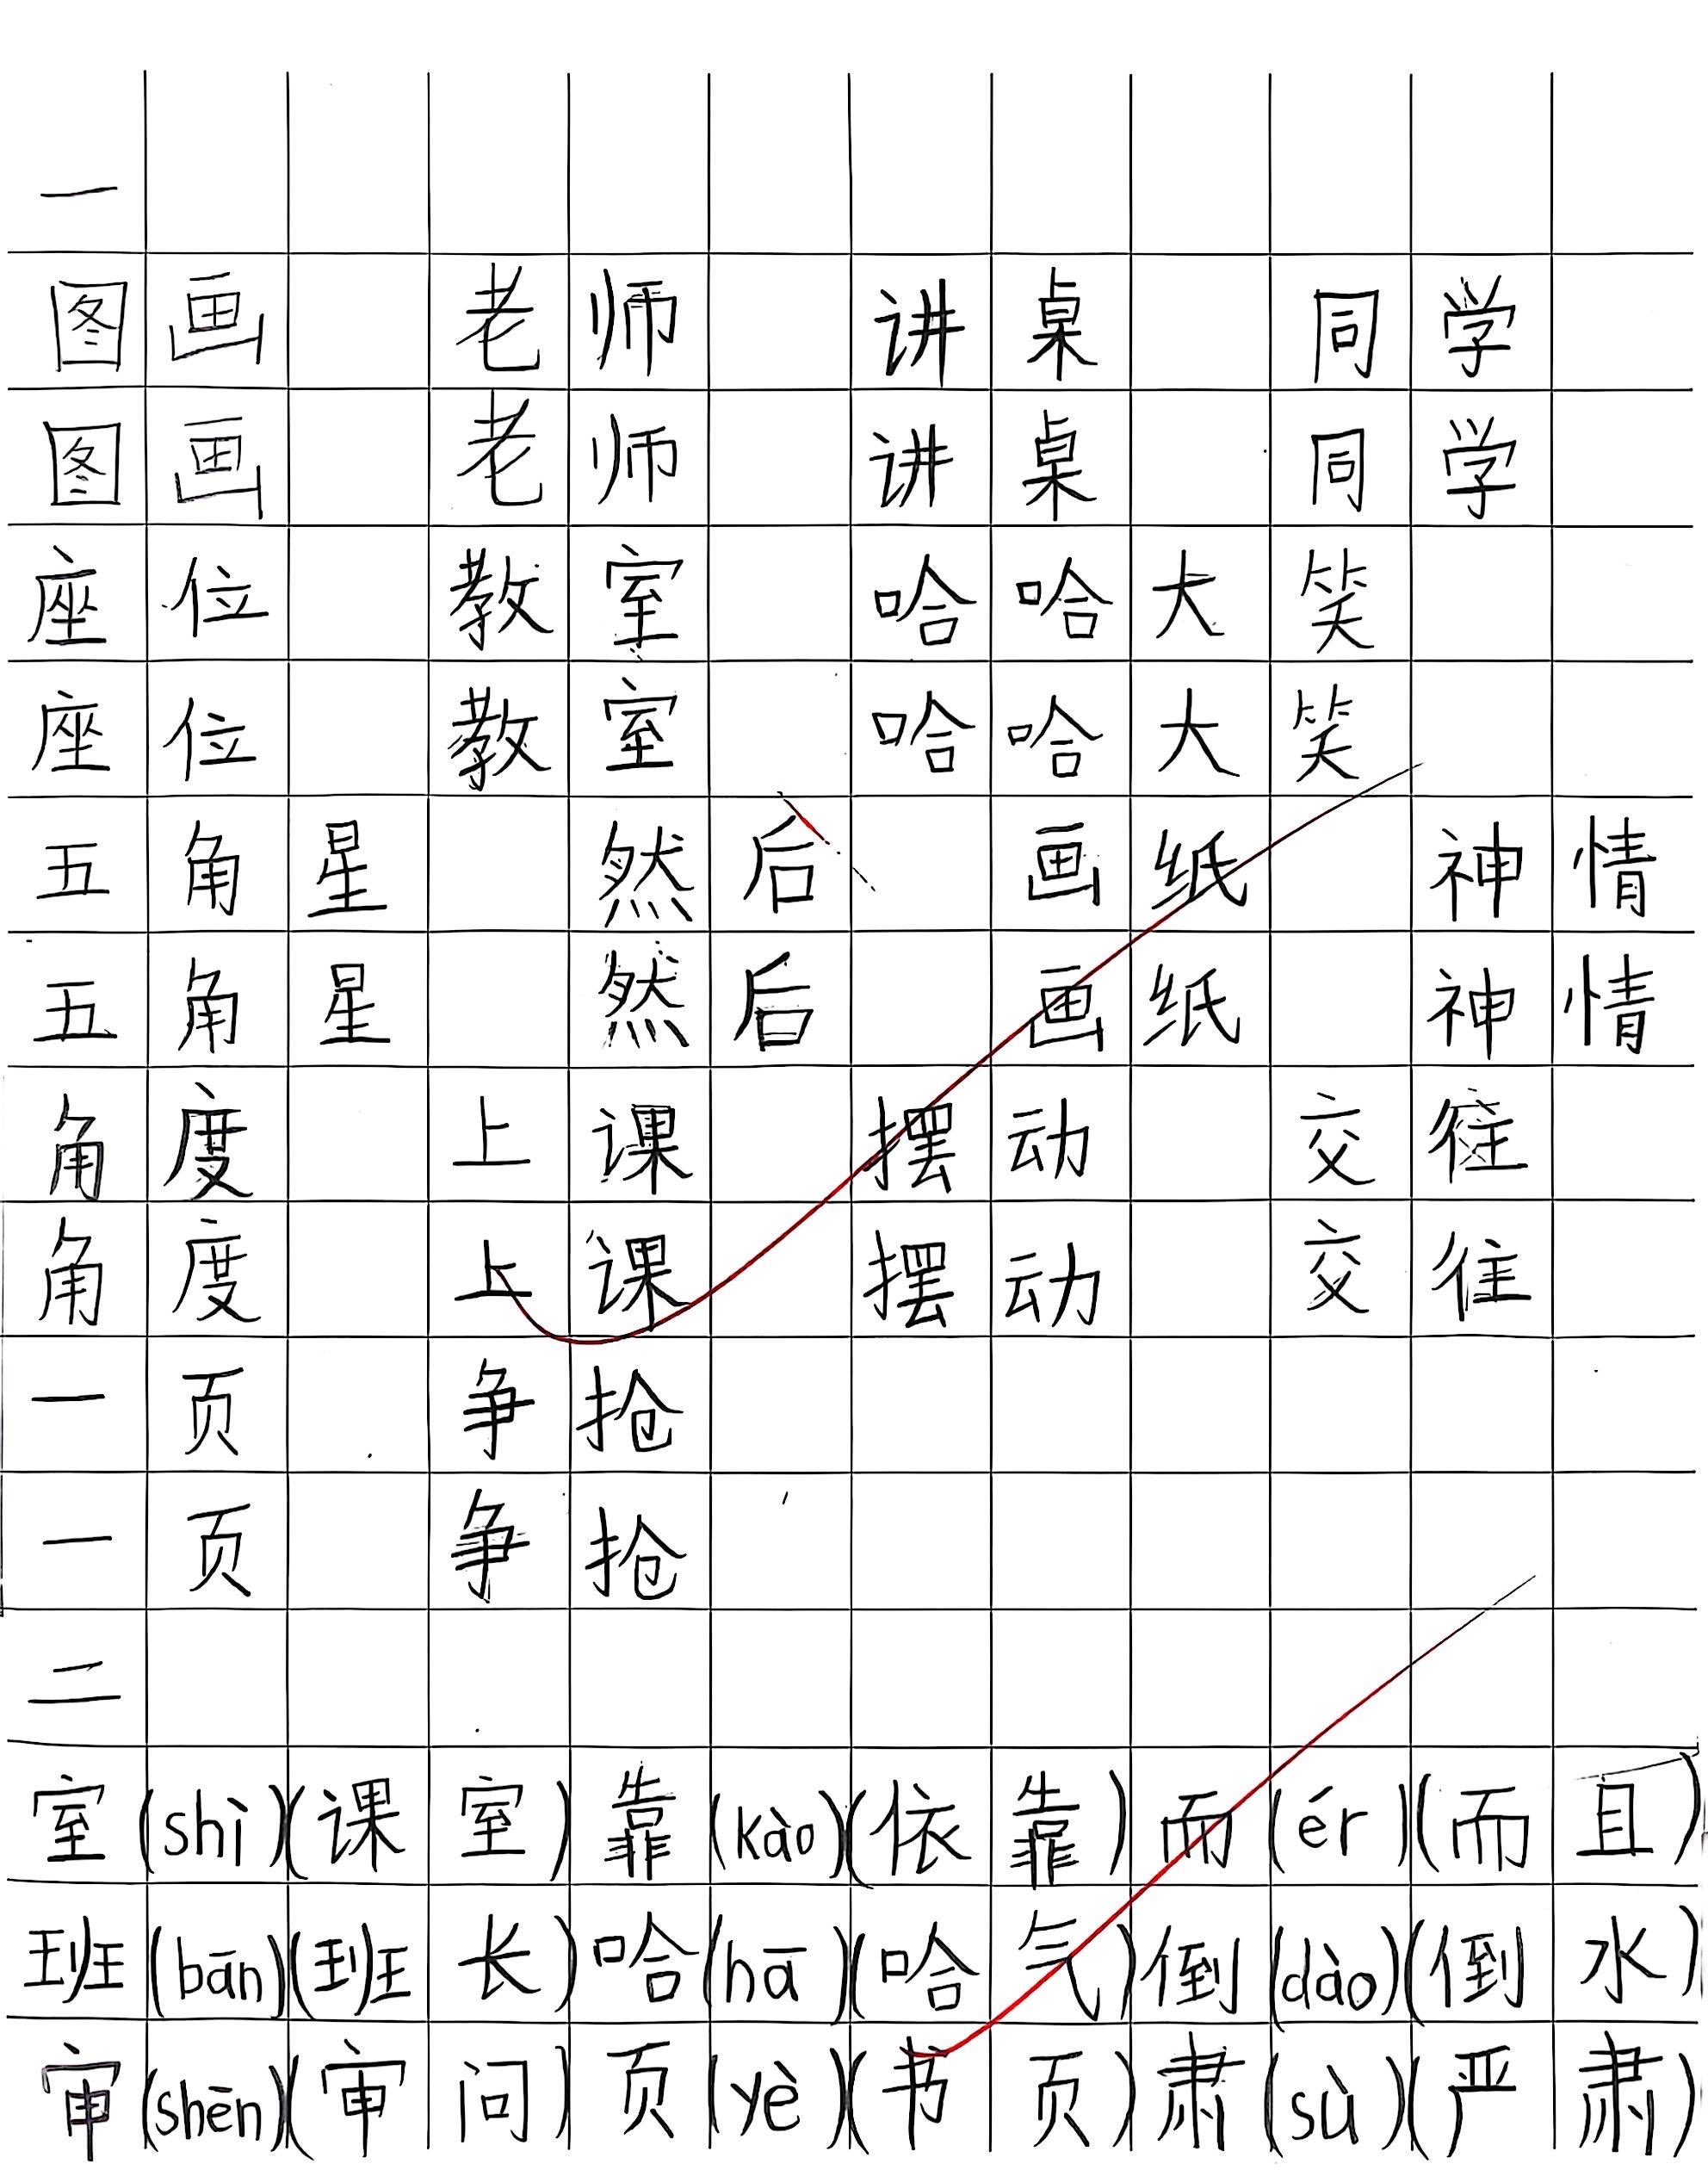 一
图画 老师 讲桌 同学
图画 老师 讲桌 同学
座位 教室 哈哈大笑
座位 教室 哈哈大笑
五角星 然后 画纸 神情
五角星 然后 画纸 神情
角度 上课 摆动 交往
角度 上课 摆动 交往
一页 争抢
一页 争抢
二
室(shì)(课室)靠(kào)(依靠)而(ér)(而且)
班(bān)(班长)哈(hā)(哈气)倒(dào)(倒水)
审(shěn)(审问)页(yè)(书页)肃(sù)(严肃)